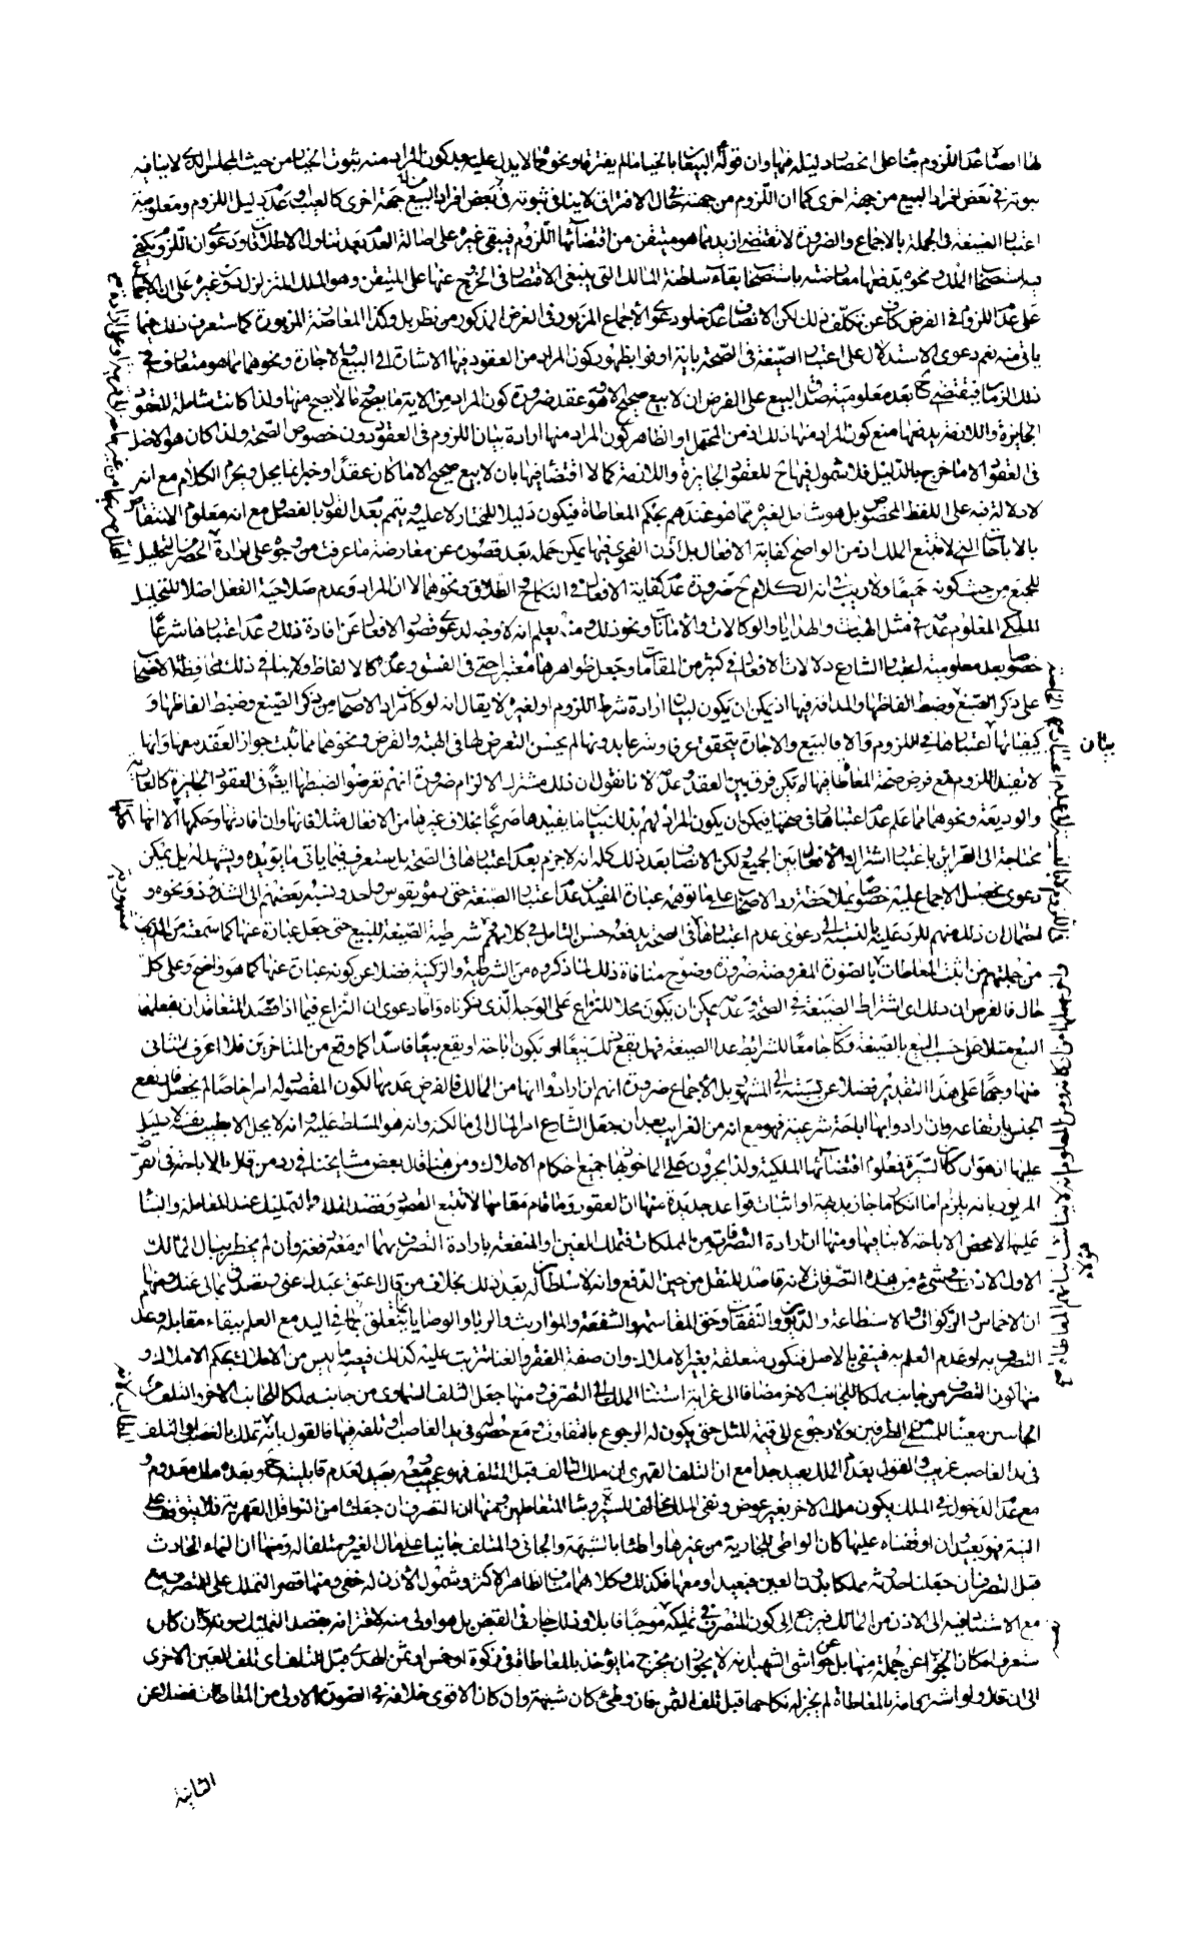 لها اصلا عدا اللزوم بناء على انحصار دليله فيها وان قوله البيعان بالخيار ما لم يفترقا ونحوه مما لا يدل عليه بعد كون المراد منه ثبوت الخيار من حيث المجلس الذي لا ينافيه
ثبوته في بعض افراد البيع من جهة اخرى كما ان اللزوم من جهته بحال الافتراق لا ينافي ثبوته في بعض افراد البيع من جهة اخرى كالعيب وعدم دليل اللزوم ومعلومية
اعتبار الصيغة في الجملة بالاجماع والضرورة لا تقتضي ازيد مما هو متيقن من اقتضائها اللزوم فيبقى غيره على اصالة العدم بعد تناول الاطلاقات ودعوى ان اللزوم يكفي
فيه استصحاب الملك ونحوه يدفعها معارضته باستصحاب بقاء سلطنة المالك التي ينبغي الاقتصار في الخروج عنها على المتيقن وهو الملك المتزلزل دون غيره على ان الاجماع
على عدم اللزوم في الفرض كاف عن تكلف ذلك لكن الانصاف عدم خلو دعوى الاجماع المزبور في الفرض المذكور من نظر بل وكذا المعارضة المزبورة كما ستعرف ذلك فيما
ياتي منه نعم دعوى الاستدلال على اعتبار الصيغة في الصحة باية اوفوا بظهور كون المراد من العقود فيها الاشارة الى البيع والاجارة ونحوهما مما هو متعارف في
ذلك الزمان فيقتضي ح بعد معلومية صدق البيع على الفرض ان لا بيع صحيح الا وهو عقد ضرورة كون المراد من الاية ما يصح لا ما لا يصح منها ولذا كانت شاملة للعقود
الجايزة واللازمة يدفعها منع كون المراد منها ذلك اذ من المحتمل او الظاهر كون المراد منها ارادة بيان اللزوم في العقود دون خصوص الصحة ولذا كان هو الاصل
في العقود الا ما خرج بالدليل فلا شمول فيها ح للعقود الجايزة واللازمة كما لا اقتضاء فيها بان لا بيع صحيح الا ما كان عقدا وخبر انما يحلل ويحرم الكلام مع انه
لا دلالة فيه على اللفظ المخصوص بل هو شامل لغيره مما هو عندهم بحكم المعاطاة فيكون دليلا للمختار لا عليه ويتمم بعدم القول بالفصل مع انه معلوم الانتقاض
بالاباحات التي لا تتبع الملك اذ من الواضح كفاية الافعال بل اذن الفحوى فيها يمكن حمله بعد قصوره عن معارضة ما عرفت من وجوه على ارادة الحصر في التحليل
للجميع من حيث كونه جميعا ولا ريب في انه الكلام ح ضرورة عدم كفاية الافعال في النكاح والطلاق ونحوهما لا ان المراد عدم صلاحية الفعل اصلا للتحليل
الملكي المعلوم عدمه في مثل الهبات والهدايا والوكالات والامانات ونحو ذلك ومنه يعلم انه لا وجه لدعوى قصور الافعال عن افادة ذلك وعدم اعتبارها شرعا
خصوصا بعد معلومية اعتبار الشارع دلالات الافعال في كثير من المقامات وجعل ظواهرها معتبرة حتى في الفسق وعدمه كالالفاظ ولا ينافي ذلك محافظة الاصحاب
على ذكر الصيغ وضبط الفاظها والمداقة فيها اذ يمكن ان يكون لبيان ارادة شرط اللزوم او لغيره لا يقال انه لو كان مراد الاصحاب من ذكر الصيغ وضبط الفاظها و
كيفياتها اعتبارها في اللزوم والا فالبيع والاجارة يتحقق عرفا وشرعا بدونها لم يحسن التعرض لها في الهبة والقرض ونحوهما مما ثبت جواز العقد معها وانها
لا تفيد اللزوم مع فرض صحة المعاطاة فيها لم تكن فرق بين العقد وعدمه لانا نقول ان ذلك مشترك الالزام ضرورة انهم تعرضوا لضبطها ايضا في العقود الجايزة كالعارية
والوديعة ونحوهما مما علم عدم اعتبارها في صحتها فيمكن ان يكون المراد لهم بذلك بيان ما يفيدها صريحا بخلاف غيرها من الافعال مثلا فانها وان افادتها وحكمها الا انها
محتاجة الى القرائن باعتبار اشتراك الافعال بين الجميع ولكن الانصاف بعد ذلك كله انه لا جزم بعدم اعتبارها في الصحة بل ستعرف فيما ياتي ما يؤيده ويشهد له بل يمكن
دعوى تحصيل الاجماع عليه خصوصا بملاحظة رد الاصحاب على ما توهمه عبارة المفيد من عدم اعتبار الصيغة حتى رموه بقوس واحد ونسبه بعضهم الى الشذوذ ونحوه و
احتمال ان ذلك منهم للرد عليه بالنسبة الى دعوى عدم اعتبارها في الصحة يدفعه حسن التامل في كلامهم شرطية الصيغة للبيع حتى جعل عبارة عنها كما سمعته من الذين
من جملتهم من اثبت المعاطات بالصورة المفروضة ضرورة وضوح منافاة ذلك لما ذكروه من الشرطية والركنية فضلا عن كونه عبارة عنها كما هو واضح وعلى كل
حال فالغرض ان ذلك اي اشتراط الصيغة في الصحة وعدمه يمكن ان يكون محلا للنزاع على الوجه الذي ذكرناه واما دعوى ان النزاع فيما اذا قصد المتعاقدان بفعلهما
البيع مثلا على حسب البيع بالصيغة وكان جامعا للشرائط عدا الصيغة فهل يقع ذلك بيعا او يكون اباحة او يقع بيعا فاسدا كما وقع من المتاخرين فلا اعرف للثاني
منها وجها على هذا التقدير فضلا عن نسبته الى المشهور بل الاجماع ضرورة انهم ان ارادوا انها من المالك فالفرض عدمها لكون المقصود له امرا خاصا لم يحصل فارتفع
الجنس بارتفاعه وان ارادوا بها اباحة شرعية فهو مع انه من الغرايب بعد ان جعل الشارع امر المال الى مالكه وانه هو المسلط عليه وانه لا يحل الا بطيب نفسه لا دليل
عليها ان هو ان كان السيرة فمعلوم اقتضائها الملكية ولذا يجرون على الماخوذ بها جميع احكام الاملاك ومن هنا قال بعض مشايخنا في رده من قال بالاباحة في الفرض
المزبور بانه يلزم اما انكار ما جاز بديهة او اثبات قواعد جديدة منها ان العقود وما قام مقامها لا تتبع القصود وقصد الملك والتمليك عند المعاملة والبناء
عليها لا محض الاباحة لا ينافيها ومنها ان ارادة التصرفات من المملكات فتملك العين والمنفعة بارادة التصرف بهما او معه دفعة وان لم يخطر ببال المالك
الاول الاذن في شيء من هذه التصرفات لانه قاصد للنقل من حين الدفع وانه لا سلطان له بعد ذلك بخلاف من قال اعتق عبدك عني وتصدق بمالي عنك ومنها
ان الاخماس والزكوات والاستطاعة والديون والنفقات وحق المقاسمة والشفعة والمواريث والربا والوصايا يتعلق بما في اليد مع العلم ببقاء مقابله وعدم
التصرف به او عدم العلم به فينفى بالاصل فتكون متعلقة بغير الاملاك وان صفة الفقر والغنا تترتب عليه كذلك فيصير ما ليس من الاملاك بحكم الاملاك و
منها كون التصرف من جانب مملكا للجانب الاخر مضافا الى غرابة استناد الملك الى التصرف ومنها جعل التلف السماوي من جانب مملكا للجانب الاخر والتلف من
الجانبين معينا للمسمى من الطرفين ولا رجوع الى قيمة المثل حتى يكون له الرجوع بالتفاوت ومع حصوله في يد الغاصب او تلفه فيها فالقول بانه تملك بالغصب او التلف
في يد الغاصب غريب والقول بعدم الملك بعيد جدا مع ان التلف القهري ان ملك التالف قبل التلف فهو عجيب ومعه بعيد لعدم قابليته ح وبعده ملك معدوم و
مع عدم الدخول في الملك يكون ملك الاخر بغير عوض ونفي الملك مخالف للسيرة وبناء المتعاطين ومنها ان التصرف ان جعلناه من النواقل القهرية فلا يتوقف على
النية فهو بعيد وان اوقفناه عليها كان الواطي للجارية من غيرها واطئا بالشبهة والجاني والمتلف جانيا على مال الغير ومتلفا له ومنها ان النماء الحادث
قبل التصرف ان جعلنا حدوثه مملكا بدون العين فبعيد او معها فكذلك وكلاهما مناف لظاهر الاكثر وشمول الاذن له خفي ومنها قصر التملك على التصرف مع
مع الاستناد فيه الى الاذن من المالك فيرجع الى كون المتصرف في تمليكه موجبا قابلا وذلك جار في القبض بل هو اولى منه لاقترانه بقصد التمليك دونه وان كان
ستعرف امكان الجواب عن جملة منها بل عن حواشي الشهيد انه لا يجوز ان يخرج ما يؤخذ بالمعاطاة في زكوة او خمس او ثمن الهدى قبل التلف اي تلف العين الاخرى
الى ان قال ولو اشترى امة بالمعاطاة لم يجز له نكاحها قبل تلف الثمن فان وطئ كان شبهة وان كان الاقوى خلافه في الصورة الاولى من المعاطات فضلا عن
الثانية
بيان
هؤلاء